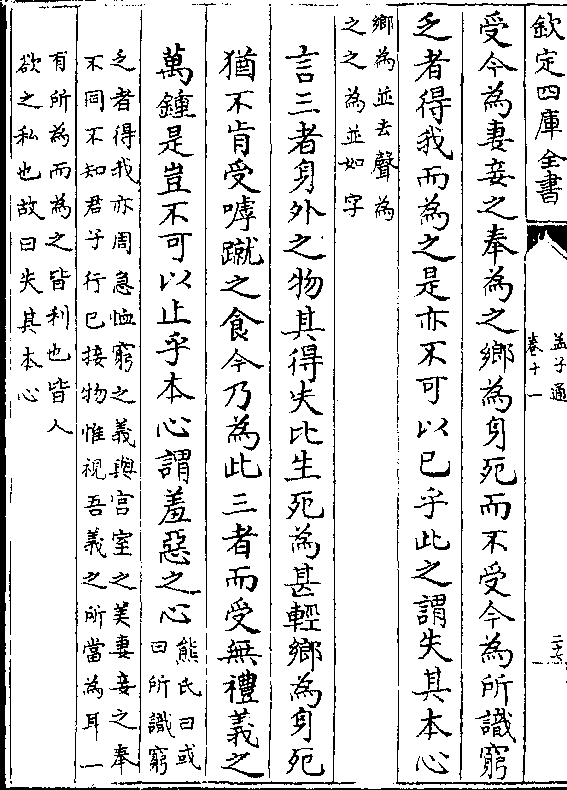 欽定四庫全書
孟子通
卷十一
受今為妻妾之奉為之鄉為身死而不受今為所識窮
乏者得我而為之是亦不可以已乎此之謂失其本心
鄉為並去聲為
之之為並如字
言三者身外之物其得失比生死為甚輕鄉為身死
猶不肯受嘑蹴之食今乃為此三者而受無禮義之
萬鍾是豈不可以止乎本心謂羞惡之心
熊氏曰或
曰所識窮
乏者得我亦周急恤窮之義與宫室之美妻妾之奉
不同不知君子行已接物惟視吾義之所當為耳一
有所為而為之皆利也皆人
欲之私也故曰失其本心